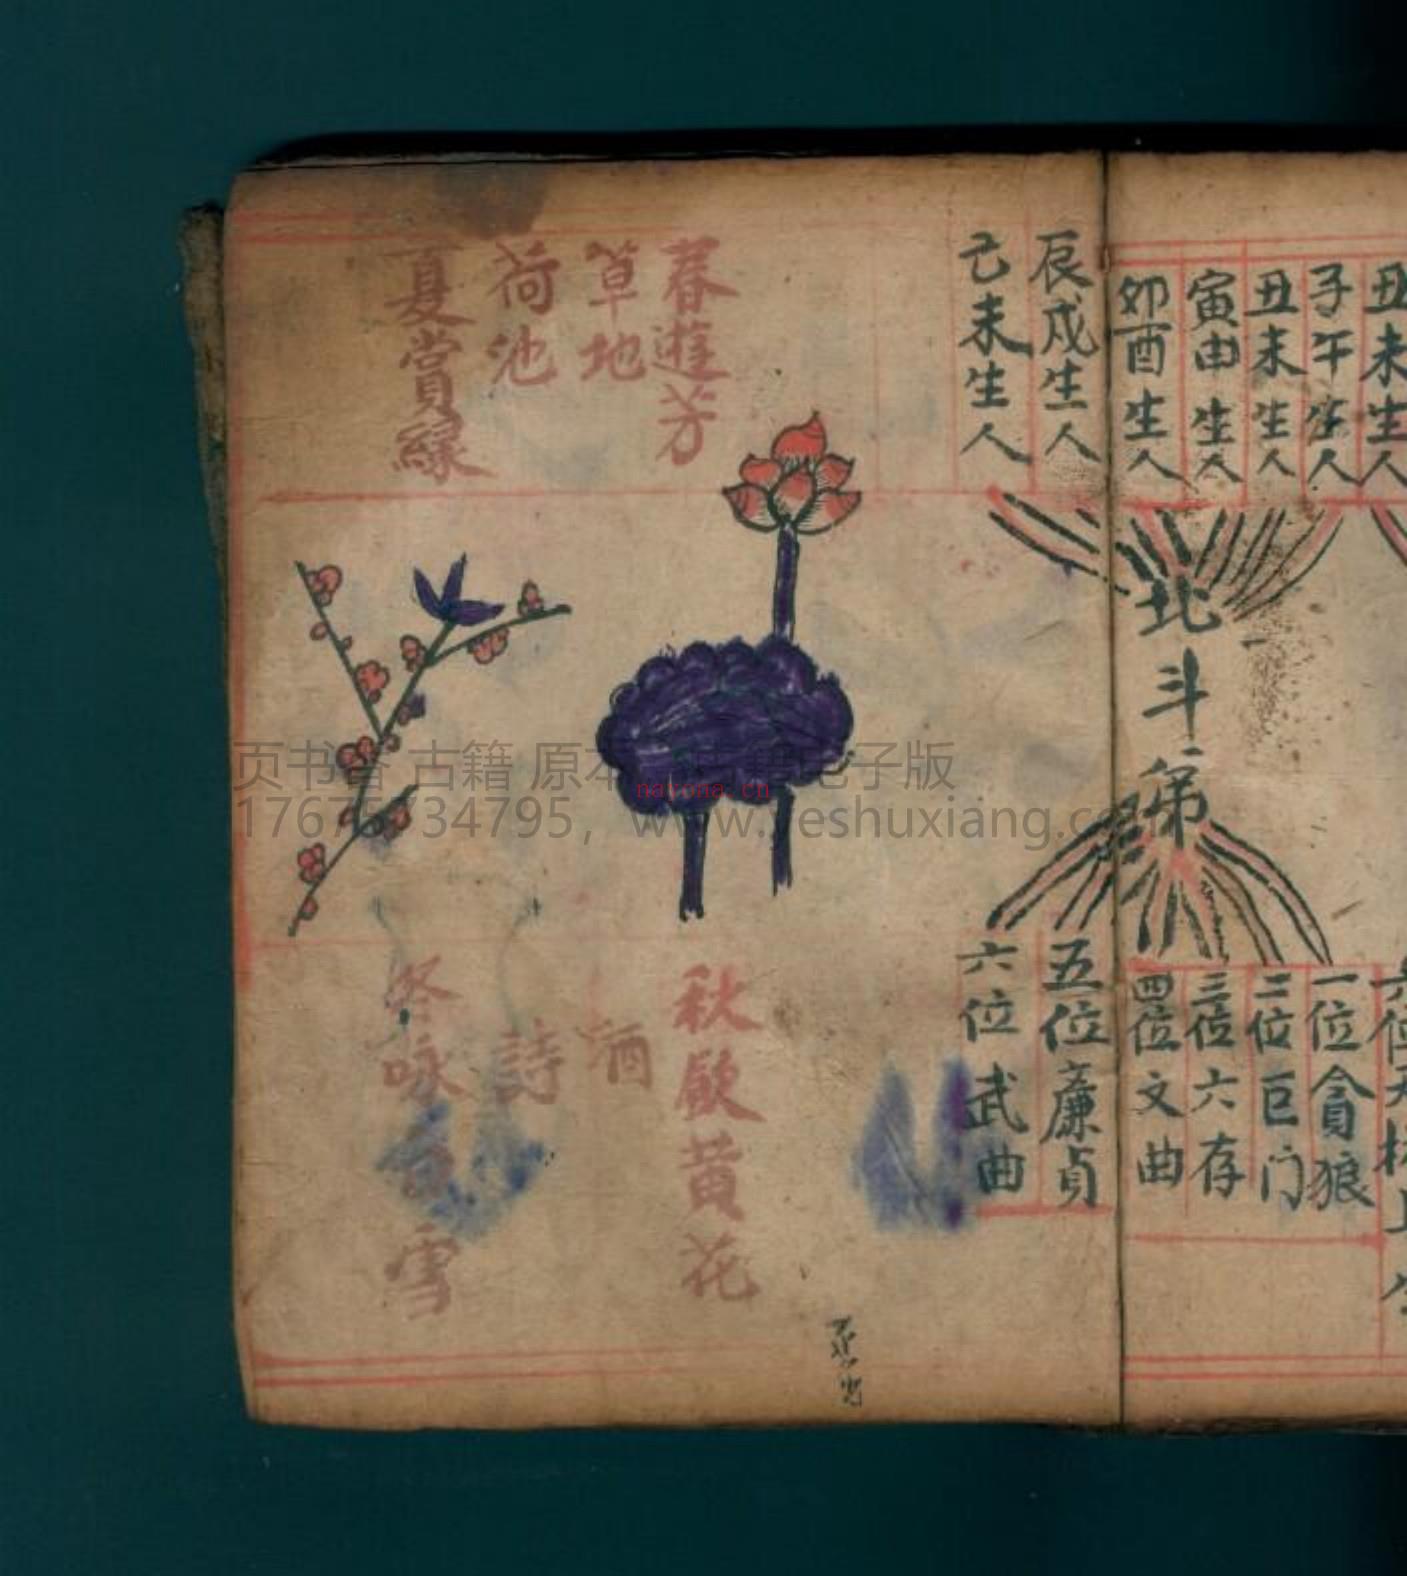 丑未生人
子午生人
丑未生人
寅由生人
卯酉生人
辰戍生人
己未生人
北斗第
一位貪狼
二位巨门
三位六存
四位文曲
五位廉貞
六位武曲
春遊芳
草地
荷池
夏賞綠
秋飲黄花
酒
詩
冬咏白雪
页书香 古籍 原本 古籍电子版
17675734795, www.yeshuxiang.c
nayona.cn